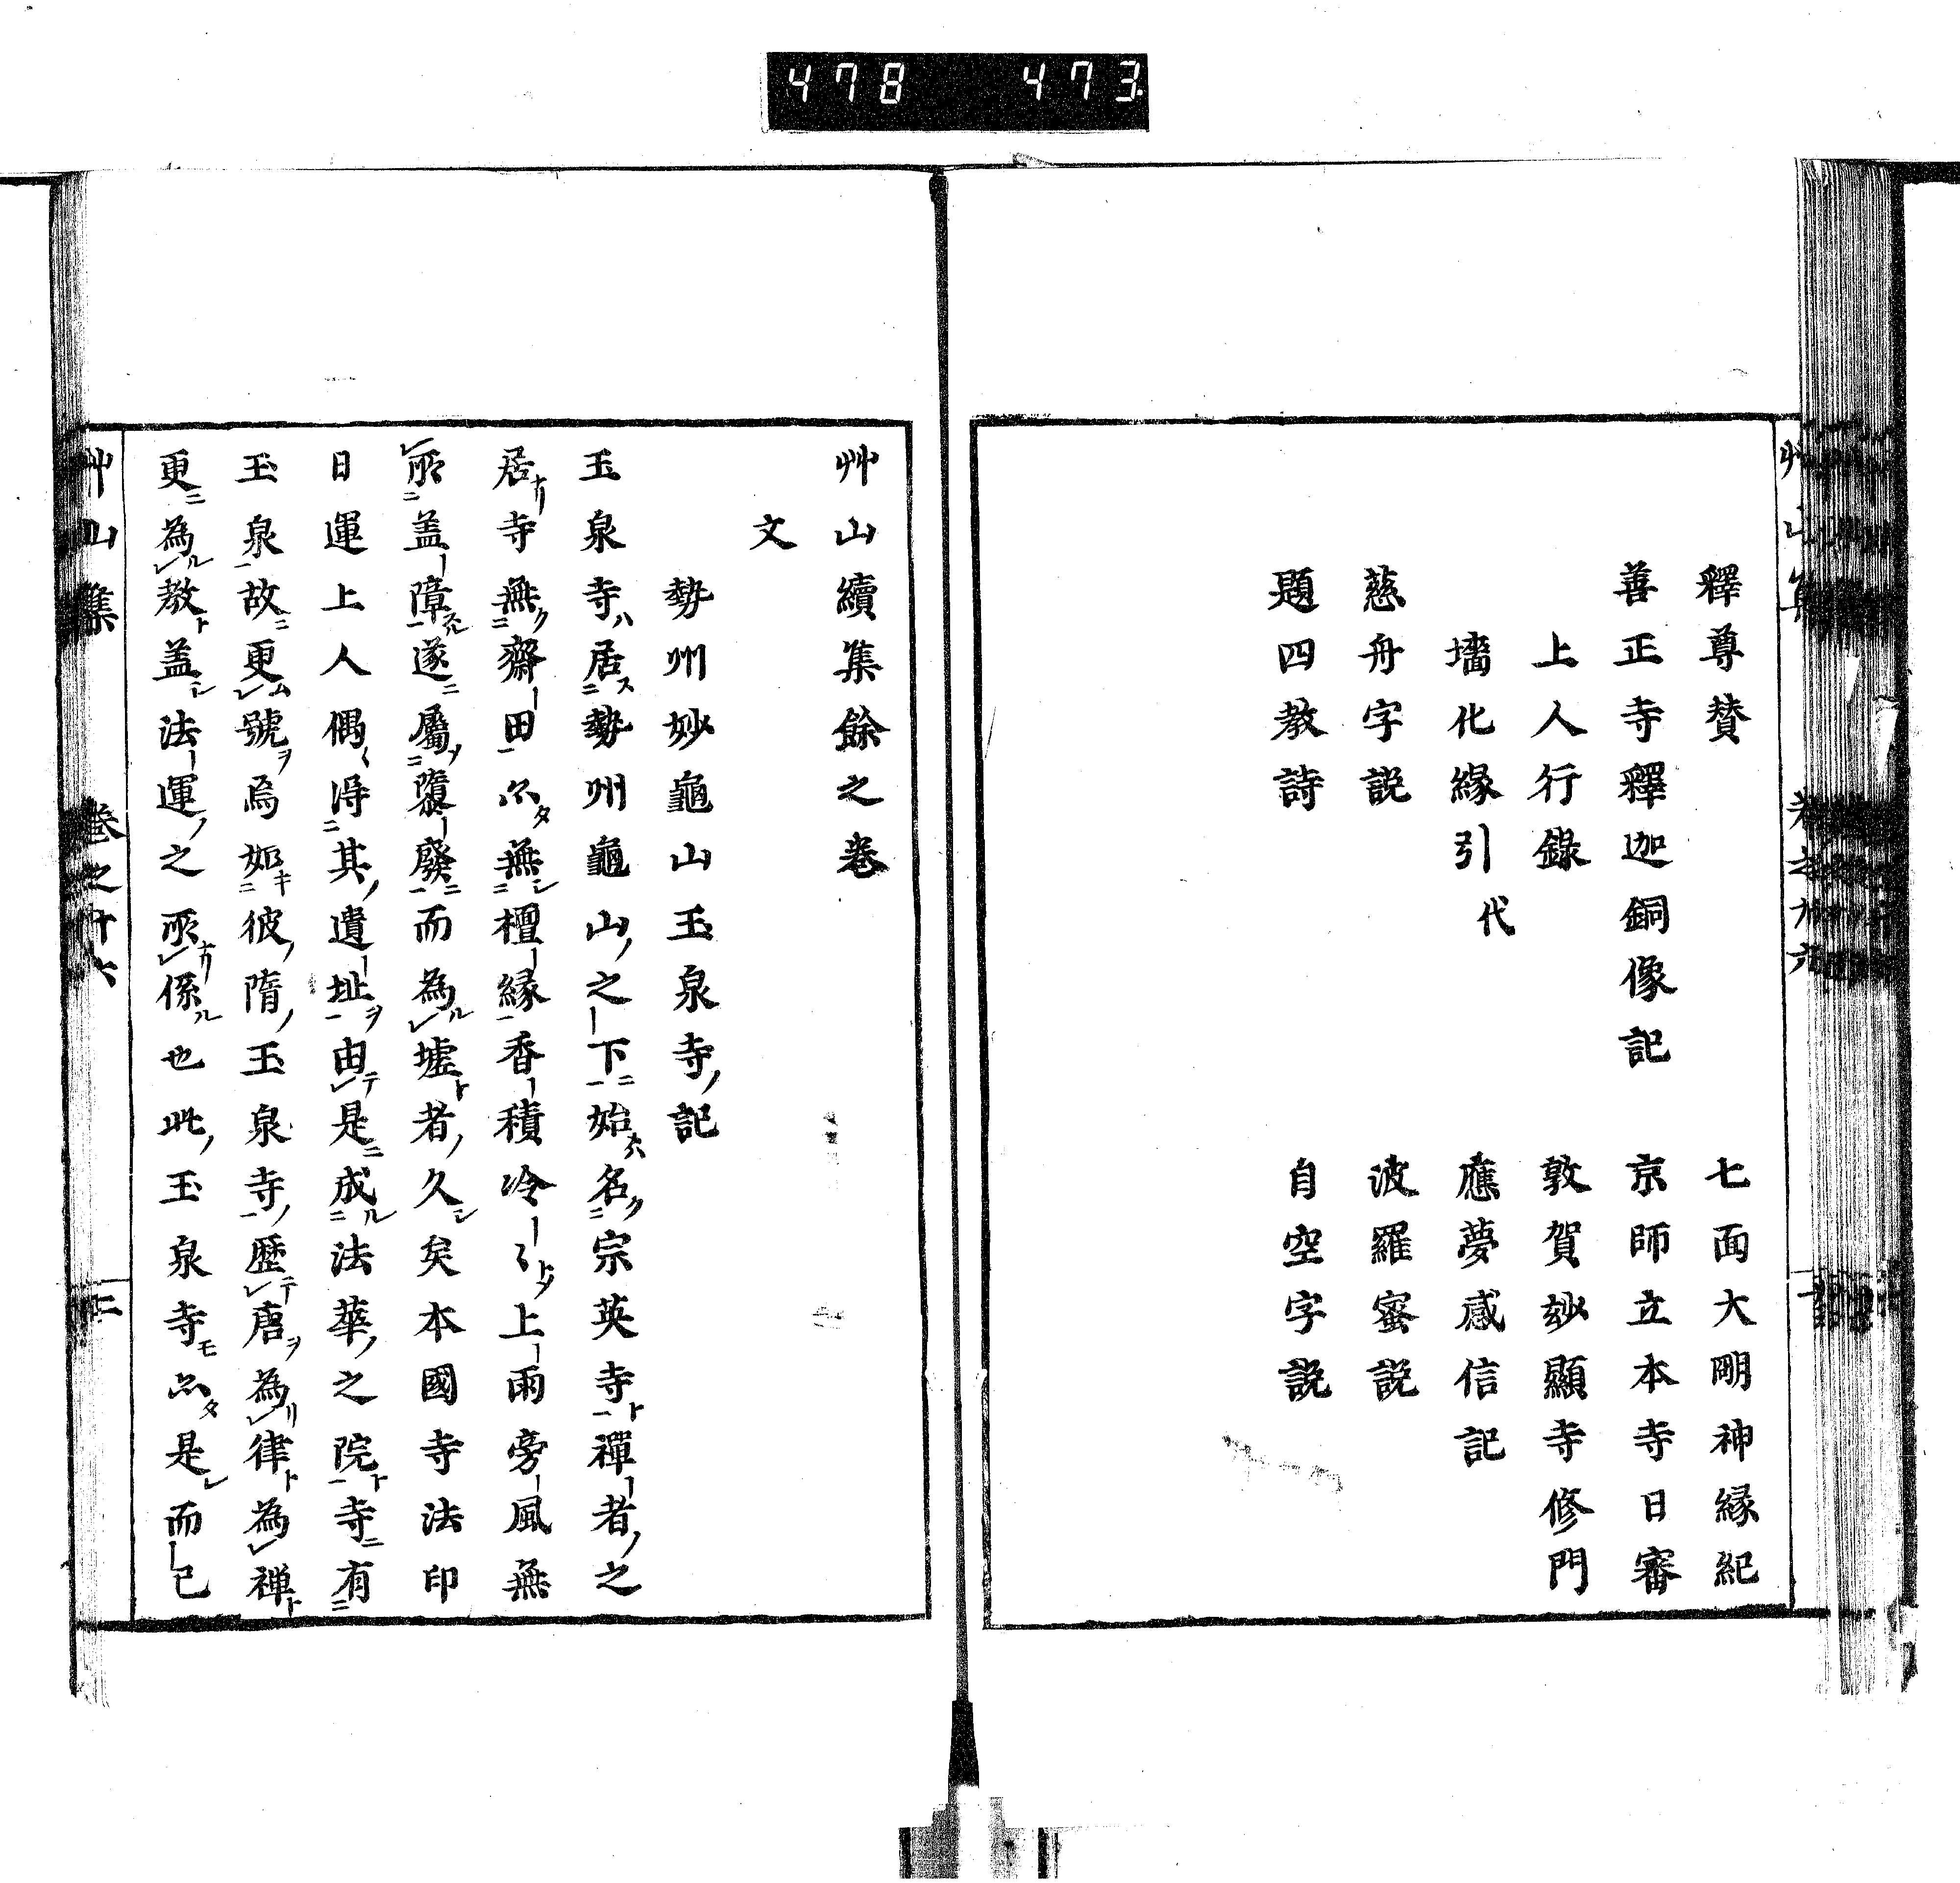 478 473
釋尊賛　七面大明神縁紀
善正寺釋迦銅像記　京師立本寺日審
上人行錄　敦賀妙顯寺修門
墻化緣引代　應夢感信記
慈舟字説　波羅蜜説
題四教詩　自空字説
艸山續集餘之卷
文
勢州妙龜山玉泉寺ノ記
玉泉寺ハ居ス二勢州龜山ノ之下ニ一始名ク二宗英寺ト一禪者ノ之
居ナリ寺無ク二齋田一亦タ無シ二檀緣一香積冷〻トメ上雨旁風無
所二盖障スル一遂ニ屬ソ二隳廢ニ一而為ルレ墟ト者ノ久シ矣本國寺法印
日運上人偶〻得二其ノ遺址ヲ一由テレ是ニ成ル二法華ノ之院ト一寺ニ有二
玉泉一故ニ更ムレ號ヲ爲如キ二彼ノ隋ノ玉泉寺ノ一歴テレ唐ヲ為リレ律ト為レ禪ト
更ニ為ルレ教ト盖シ法運ノ之所ナリレ係ル也此ノ玉泉寺モ亦タ是レ而已
艸山集　卷之十六　二